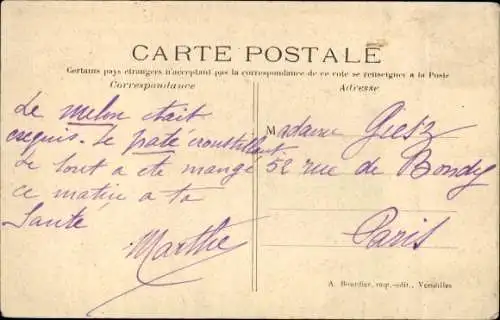 CARTE POSTALE
Certains pays étrangers n'acceptant pas la correspondance de ce côté se renseigner à la Poste
Correspondance
Adresse
Le melon était
exquis. Le paté croustillant.
Le tout a été mangé
ce matin a ta
Santé
Marthe
Madame
52 rue de Bondy
Paris
A. Bourdier, imp.-édit., Versailles